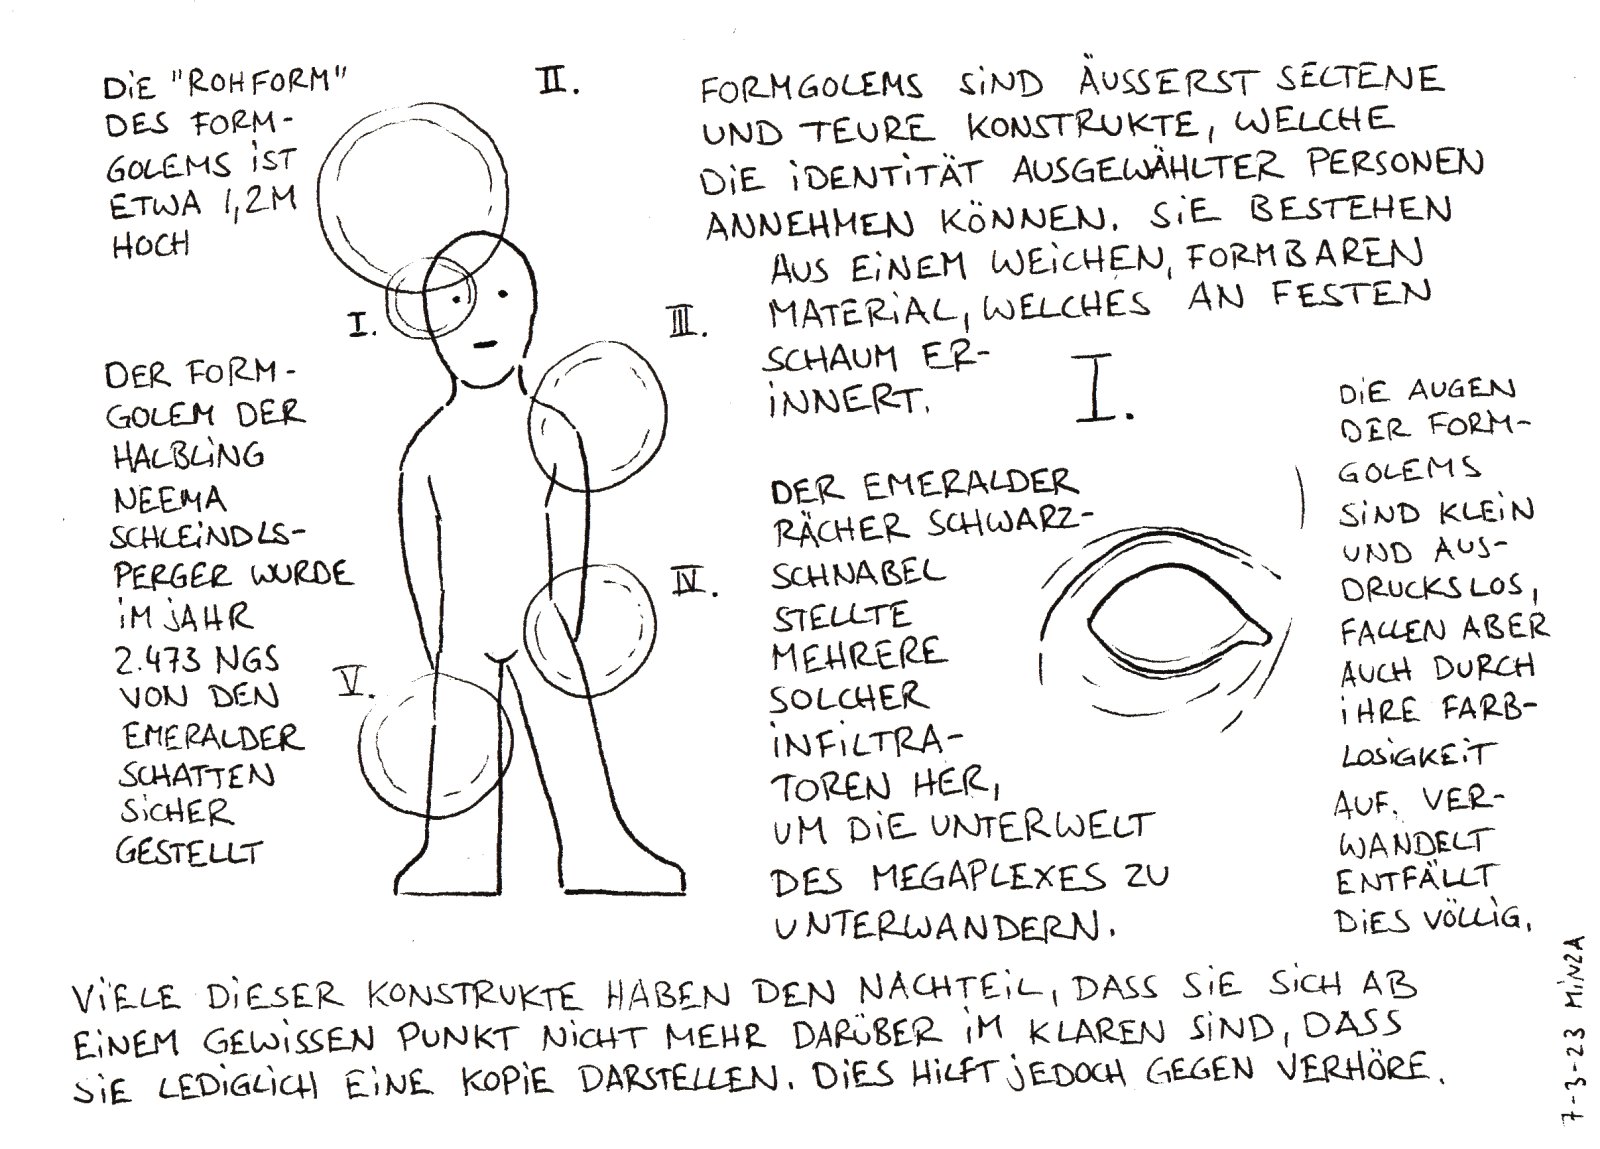 DIE "ROHFORM"
DES FORM-
GOLEMS IST
ETWA 1,2M
HOCH
II.
I.
III.
IV.
V.
DER FORM-
GOLEM DER
HALBLING
NEEMA
SCHLEINDLS-
PERGER WURDE
IM JAHR
2.473 NGS
VON DEN
EMERALDER
SCHATTEN
SICHER
GESTELLT
FORMGOLEMS SIND ÄUSSERST SELTENE
UND TEURE KONSTRUKTE, WELCHE
DIE IDENTITÄT AUSGEWÄHLTER PERSONEN
ANNEHMEN KÖNNEN. SIE BESTEHEN
AUS EINEM WEICHEN, FORMBAREN
MATERIAL, WELCHES AN FESTEN
SCHAUM ER-
INNERT.
I.
DER EMERALDER
RÄCHER SCHWARZ-
SCHNABEL
STELLTE
MEHRERE
SOLCHER
INFILTRA-
TOREN HER,
UM DIE UNTERWELT
DES MEGAPLEXES ZU
UNTERWANDERN.
DIE AUGEN
DER FORM-
GOLEMS
SIND KLEIN
UND AUS-
DRUCKSLOS,
FALLEN ABER
AUCH DURCH
IHRE FARB-
LOSIGKEIT
AUF. VER-
WANDELT
ENTFÄLLT
DIES VÖLLIG.
VIELE DIESER KONSTRUKTE HABEN DEN NACHTEIL, DASS SIE SICH AB
EINEM GEWISSEN PUNKT NICHT MEHR DARÜBER IM KLAREN SIND, DASS
SIE LEDIGLICH EINE KOPIE DARSTELLEN. DIES HILFT JEDOCH GEGEN VERHÖRE.
7-3-23 MINZA